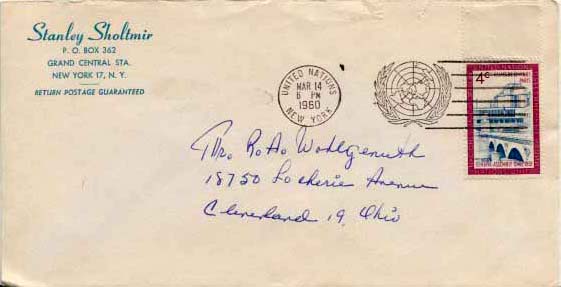 Stanley Sholtmir
P. O. BOX 362
GRAND CENTRAL STA.
NEW YORK 17, N. Y.
RETURN POSTAGE GUARANTEED
UNITED NATIONS
MAR 14
6 PM
1960
NEW YORK
4c
Mr. R. A. Wohlgemuth
18750 Lockerie Avenue
Cleveland 19, Ohio